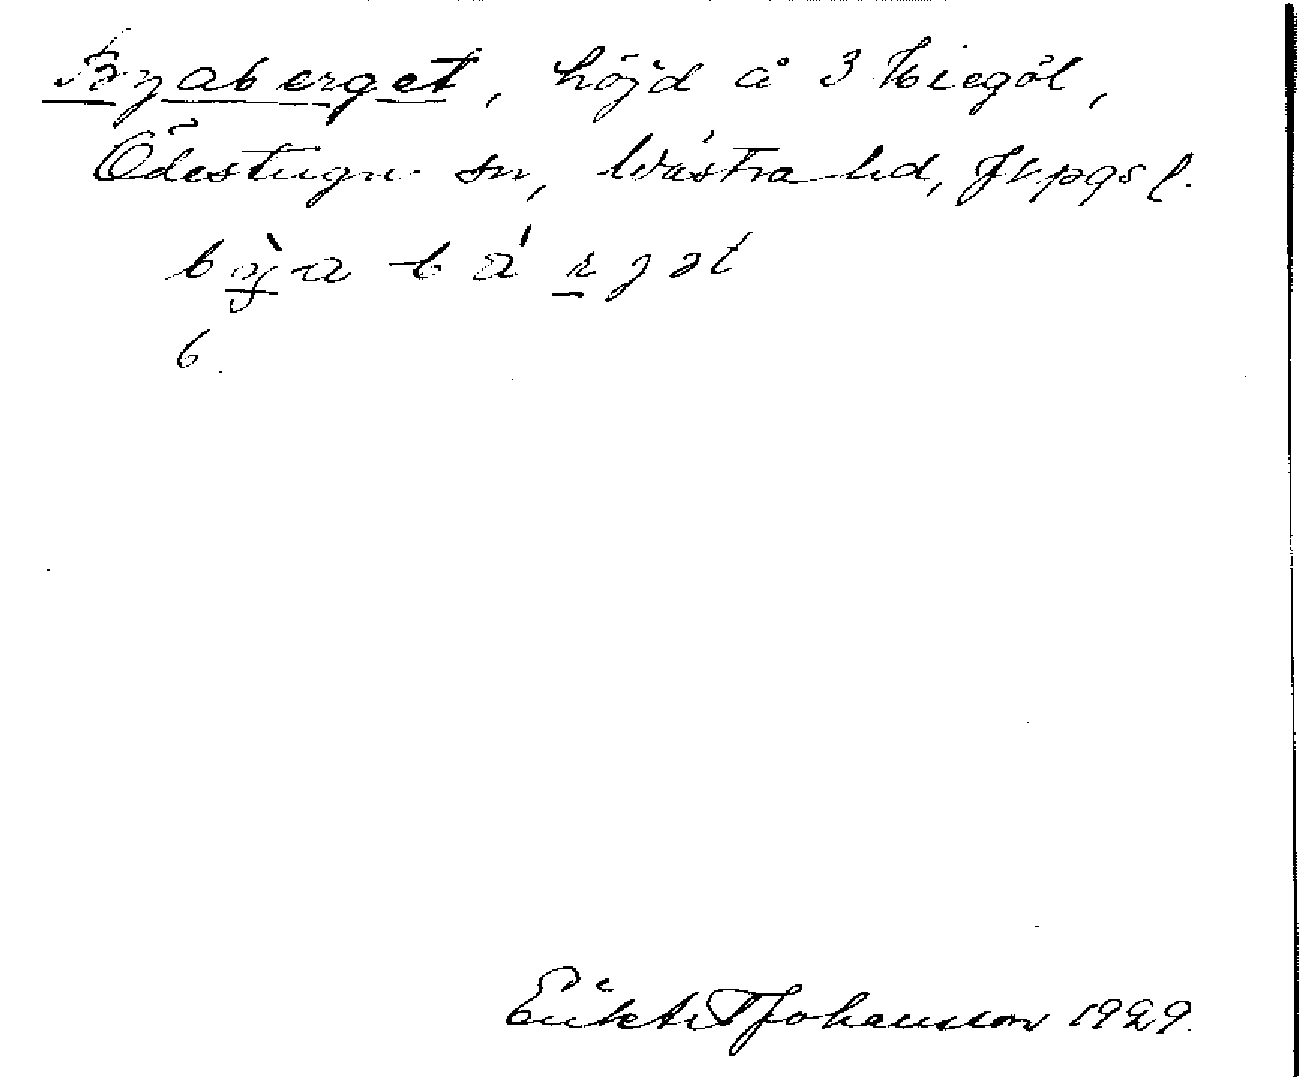 Byaberget, höjd å 3 Kiegöl,
Ödestugu sn, Västra hd, Jkpgs l.
bỳa bä́rgət
6.
Johansson 1929.